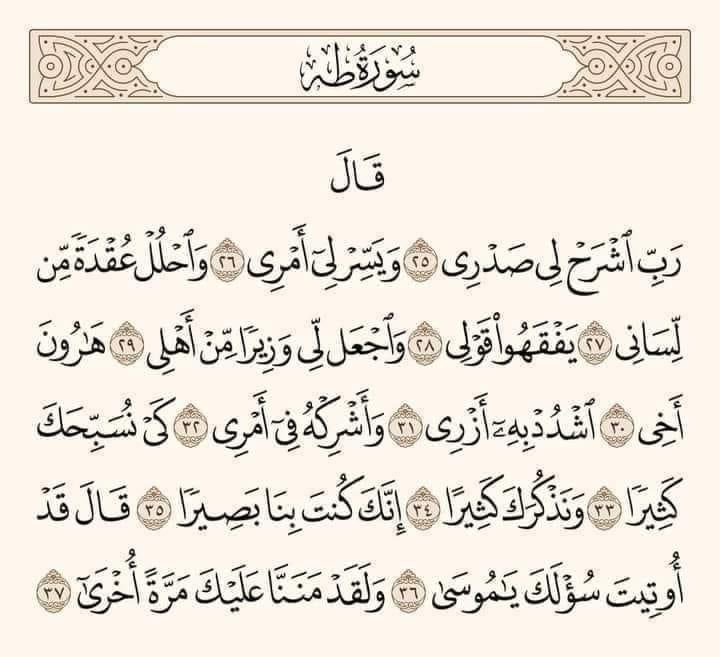 سُورَةُ طه
قَالَ
رَبِّ ٱشۡرَحۡ لِي صَدۡرِي ٢٥ وَيَسِّرۡ لِيٓ أَمۡرِي ٢٦ وَٱحۡلُلۡ عُقۡدَةٗ مِّن
لِّسَانِي ٢٧ يَفۡقَهُواْ قَوۡلِي ٢٨ وَٱجۡعَل لِّي وَزِيرٗا مِّنۡ أَهۡلِي ٢٩ هَٰرُونَ
أَخِي ٣٠ ٱشۡدُدۡ بِهِۦٓ أَزۡرِي ٣١ وَأَشۡرِكۡهُ فِيٓ أَمۡرِي ٣٢ كَيۡ نُسَبِّحَكَ
كَثِيرٗا ٣٣ وَنَذۡكُرَكَ كَثِيرًا ٣٤ إِنَّكَ كُنتَ بِنَا بَصِيرٗا ٣٥ قَالَ قَدۡ
أُوتِيتَ سُؤۡلَكَ يَٰمُوسَىٰ ٣٦ وَلَقَدۡ مَنَنَّا عَلَيۡكَ مَرَّةً أُخۡرَىٰٓ ٣٧